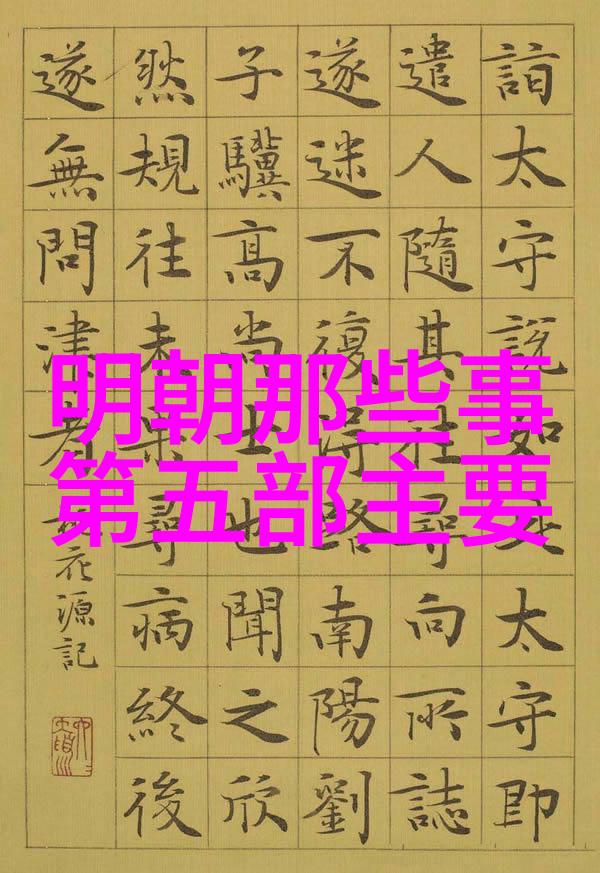 明朝那些事
第五部主要
詣太守說如此太守即
遣人隨其往尋向所誌
遂迷不復得路南陽劉
子驥高尚士也聞之欣
然規往未果尋病終後
遂無問津者
花源記